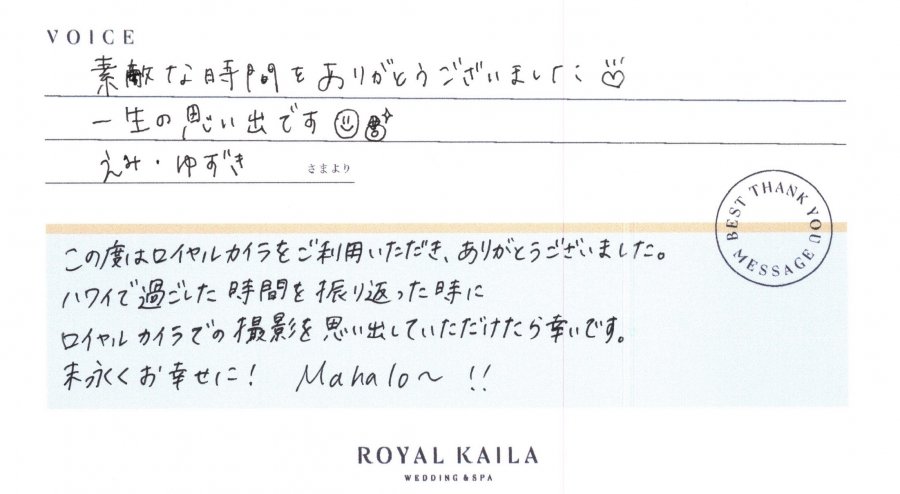 VOICE
素敵な時間をありがとうございました♡
一生の思い出です
えみ・ゆずき さまより
BEST THANK YOU MESSAGE
この度はロイヤルカイラをご利用いただき、ありがとうございました。
ハワイで過ごした時間を振り返った時に
ロイヤルカイラでの撮影を思い出していただけたら幸いです。
末永くお幸せに! Mahalo〜 !!
ROYAL KAILA
WEDDING & SPA